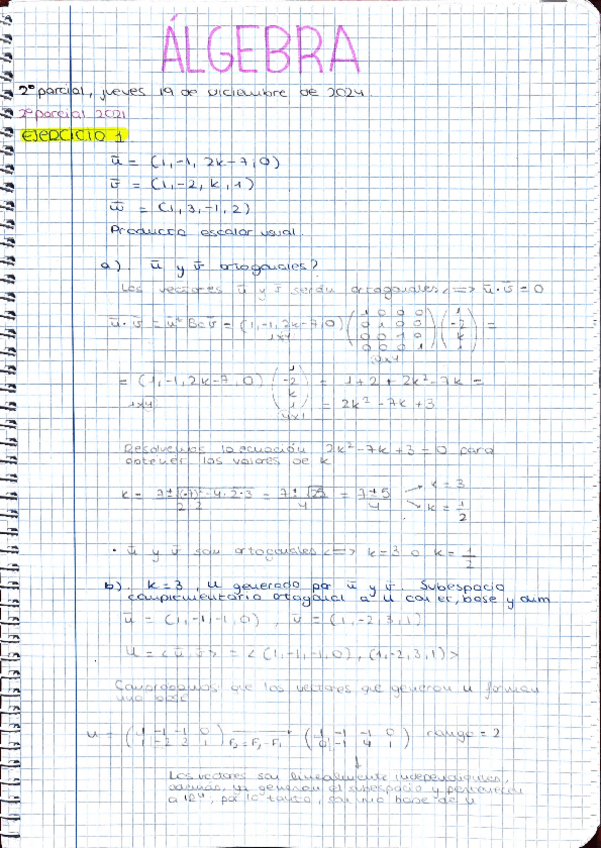 ÁLGEBRA
2º parcial, jueves 19 de diciembre de 2024.
2º parcial 2021
EJERCICIO 1
ū = (1, -1, 2k-7, 0)
v̄ = (1, -2, k, 1)
w̄ = (1, 3, -1, 2)
Producto escalar usual.
a). ū y v̄ ortogonales?
Los vectores ū y v̄ serán ortogonales <=> ū·v̄ = 0
ū·v̄ = ūᵗ Bc v̄ = (1, -1, 2k-7, 0) (1 0 0 0 / 0 1 0 0 / 0 0 1 0 / 0 0 0 1) (1 / -2 / k / 1) =
1x4 4x4
= (1, -1, 2k-7, 0) (1 / -2 / k / 1) = 1+2+2k²-7k =
= 2k² - 7k + 3
1x4 4x1
Resolvemos la ecuación 2k²-7k+3=0 para
obtener los valores de k
k = 7±√(-7)²-4·2·3 / 2·2 = 7±√25 / 4 = 7±5 / 4 → k = 3 → k = 1/2
· ū y v̄ son ortogonales <=> k=3 o k = 1/2
b). k=3, U generado por ū y v̄. Subespacio
complementario ortogonal a U con ec, base y dim
ū = (1, -1, -1, 0), v̄ = (1, -2, 3, 1)
U = <ū, v̄> = <(1, -1, -1, 0), (1, -2, 3, 1)>
Comprobamos que los vectores que generan U forman
una base
U = (1 -1 -1 0 / 1 -2 3 1) F₂=F₂-F₁ (1 -1 -1 0 / 0 -1 4 1) rango = 2
Los vectores son linealmente independientes,
además, ya generan el subespacio y pertenecen
a R⁴, por lo tanto, son una base de U